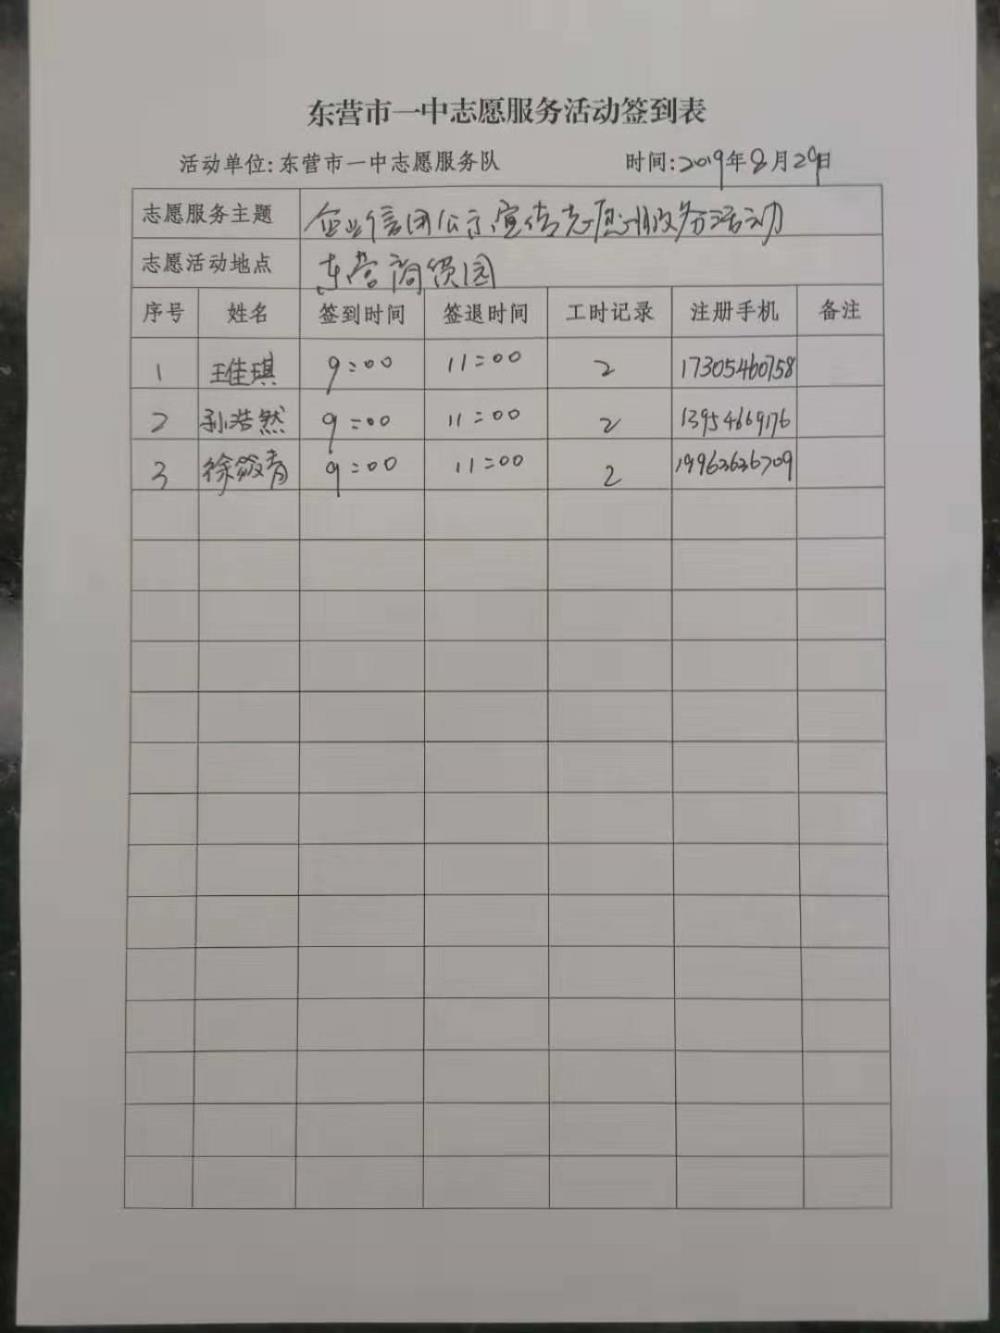 东营市一中志愿服务活动签到表
活动单位:东营市一中志愿服务队 时间:2019年8月29日
志愿服务主题 企业信用公示宣传志愿服务活动
志愿活动地点 东营商贸园
序号 姓名 签到时间 签退时间 工时记录 注册手机 备注
1 王佳琪 9:00 11:00 2 17305460758
2 孙浩然 9:00 11:00 2
3 徐 青 9:00 11:00 2 19963636709